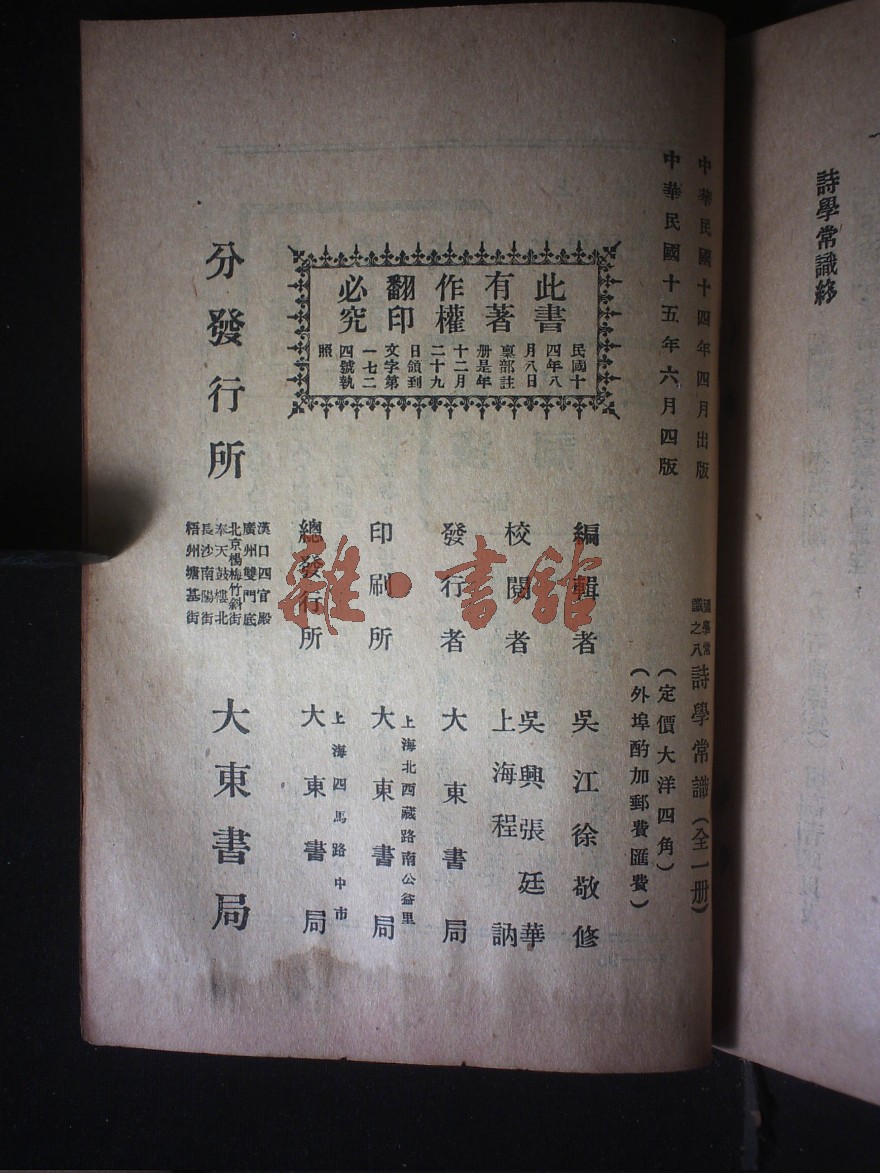 詩學常識終
中華民國十四年四月出版
中華民國十五年六月四版
國學常
識之八
詩學常識(全一册)
(定價大洋四角)
(外埠酌加郵費匯費)
此書
有著
作權
翻印
必究
民國十
四年八
月八日
稟部註
册是年
十二月
二十九
日領到
文字第
一七二
四號執
照
編輯者 吳江徐敬修
校閱者 吳興張廷華
上海程訥
發行者 大東書局
印刷所 上海北西藏路南公益里
大東書局
總發行所 上海四馬路中市
大東書局
分發行所
漢口四官殿
廣州雙門底
北京楊梅竹斜街
奉天鼓樓北
長沙南陽街
梧州塘基街
大東書局
雜·書館